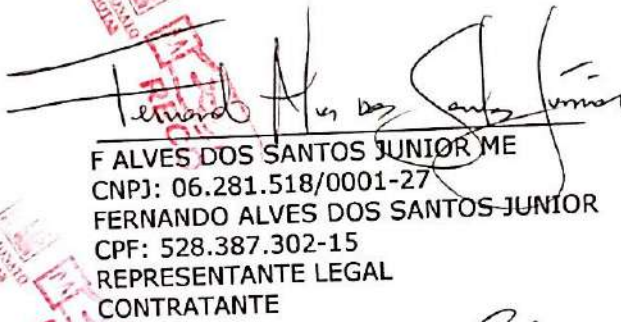 Fernando Alves dos Santos Junior
F ALVES DOS SANTOS JUNIOR ME
CNPJ: 06.281.518/0001-27
FERNANDO ALVES DOS SANTOS JUNIOR
CPF: 528.387.302-15
REPRESENTANTE LEGAL
CONTRATANTE